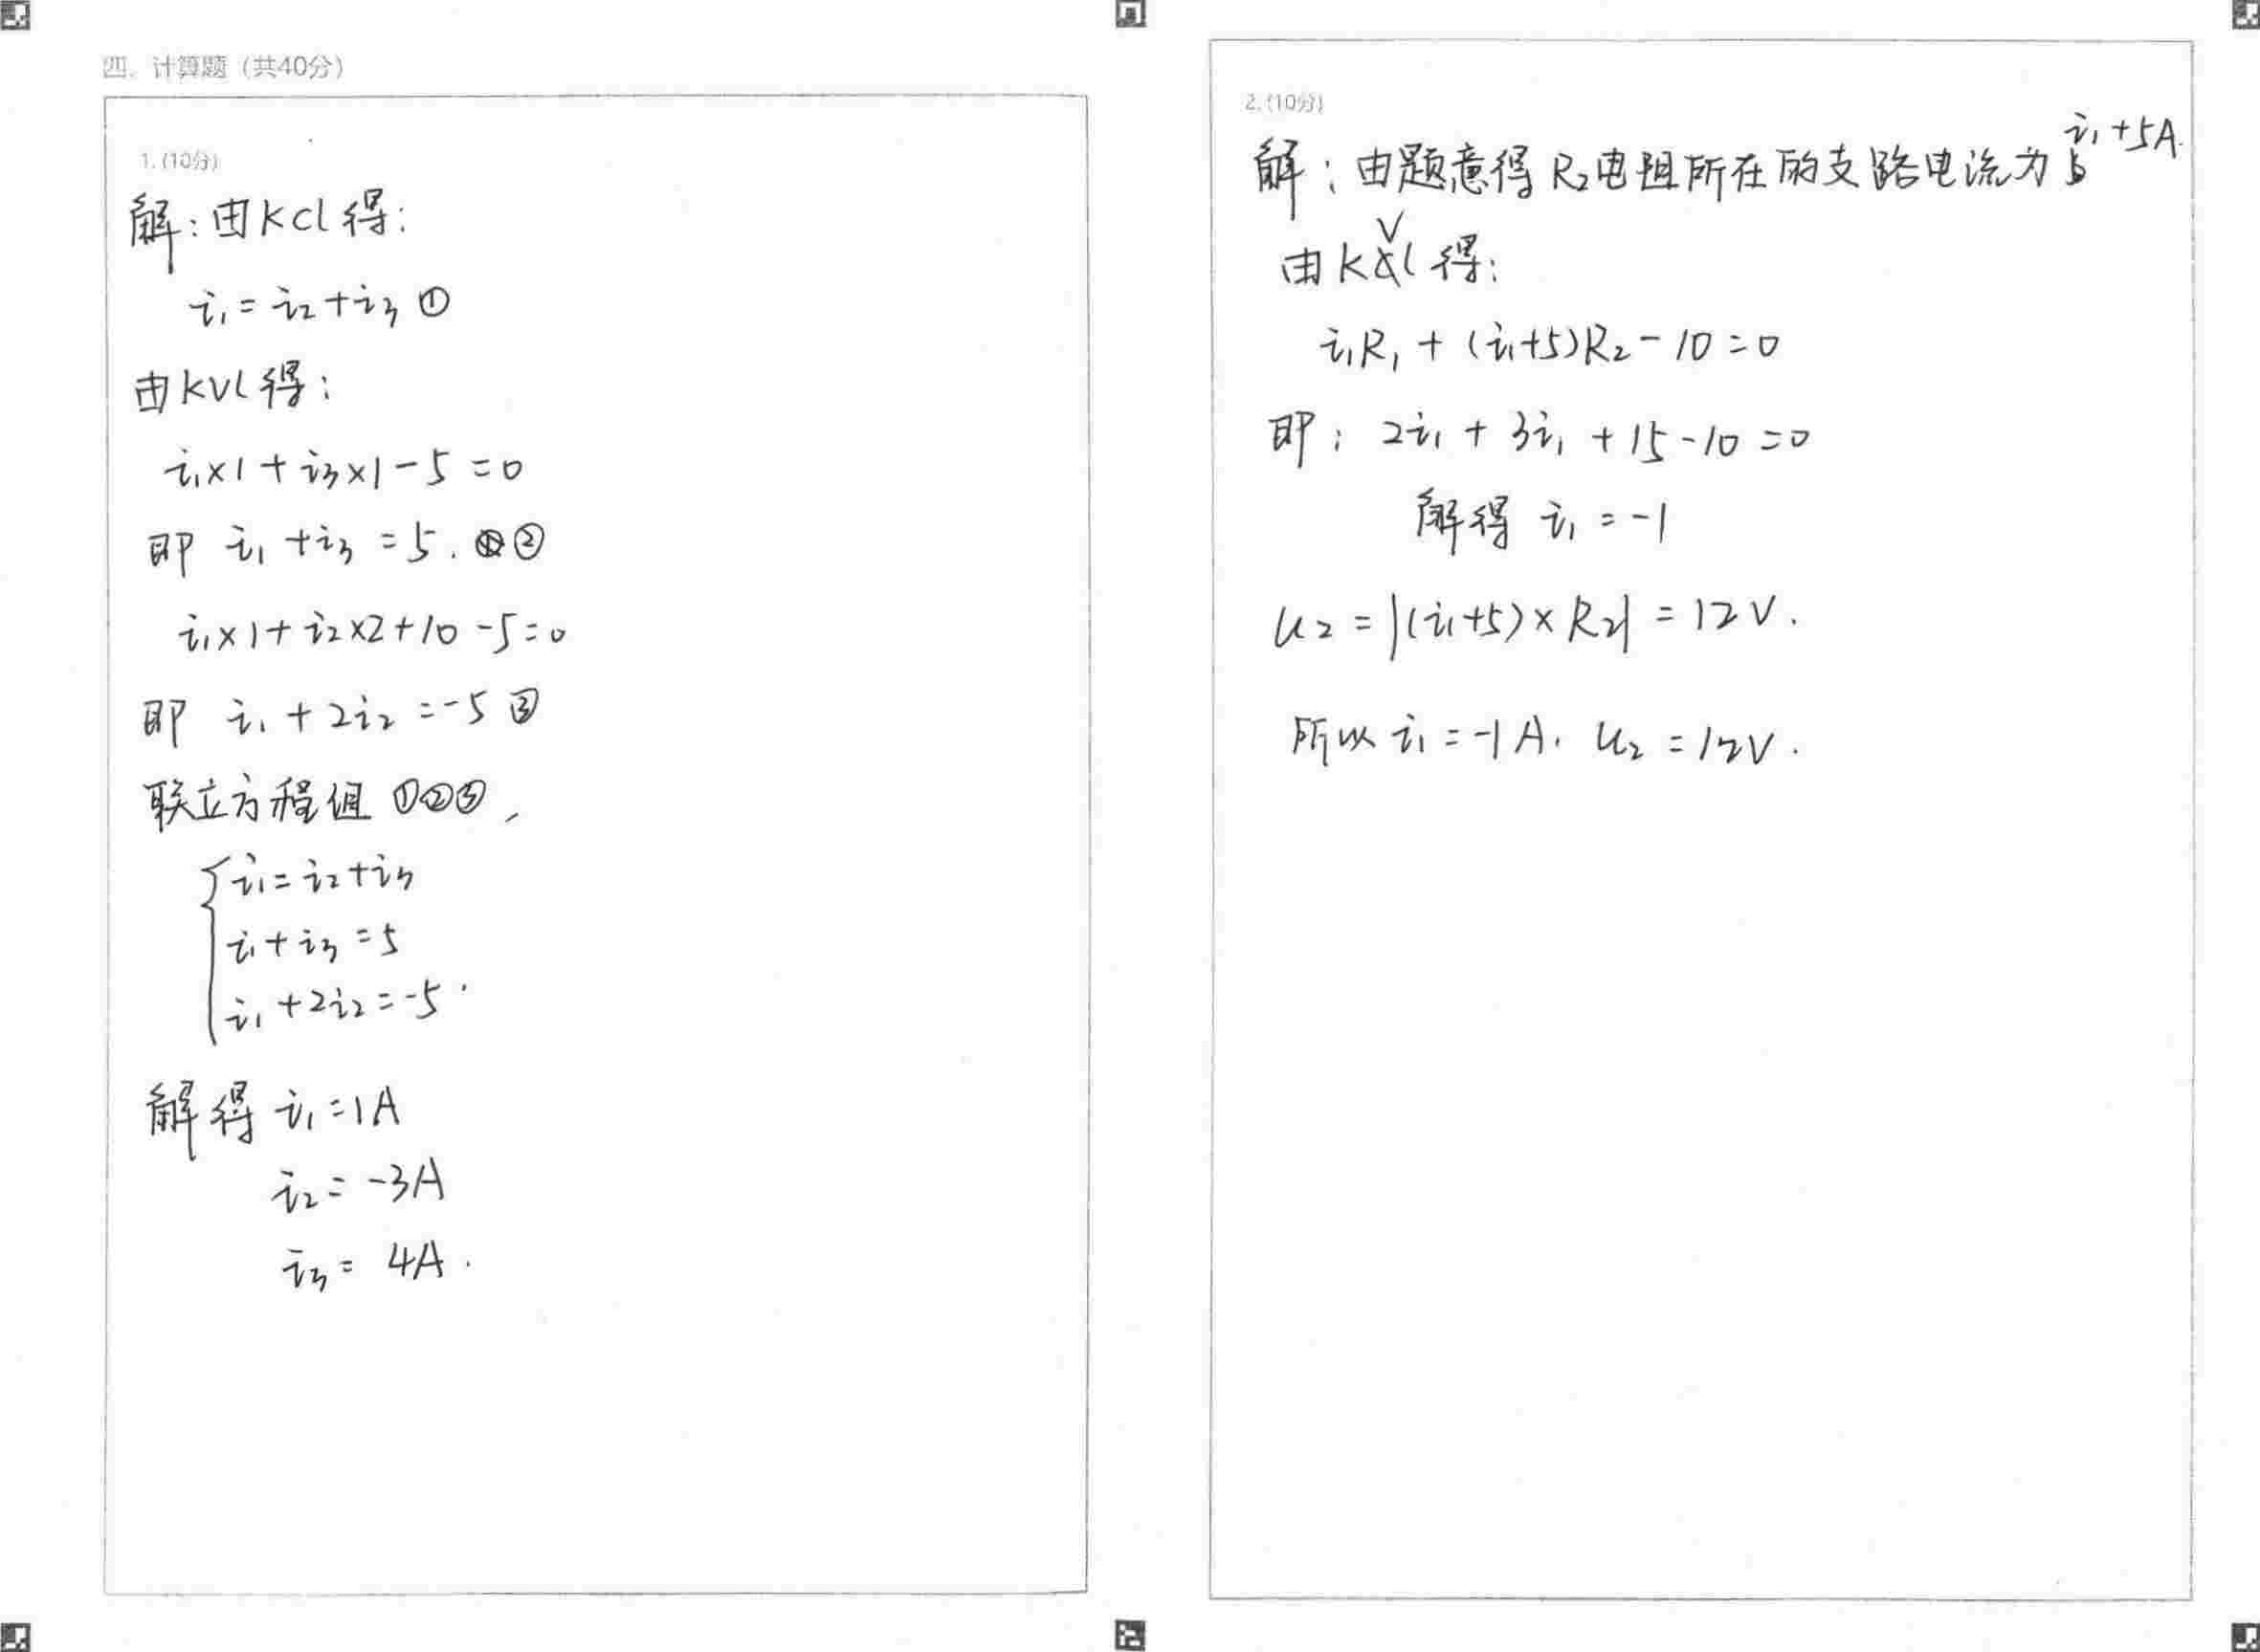 四. 计算题（共40分）
1. (10分)
解：由KCL得：
i₁ = i₂ + i₃ ①
由KVL得：
i₁×1 + i₃×1 - 5 = 0
即 i₁ + i₃ = 5. ②
i₁×1 + i₂×2 + 10 - 5 = 0
即 i₁ + 2i₂ = -5 ③
联立方程组 ①②③，
i₁ = i₂ + i₃
i₁ + i₃ = 5
i₁ + 2i₂ = -5.
解得 i₁ = 1A
i₂ = -3A
i₃ = 4A.
2. (10分)
解：由题意得 R₂电阻所在的支路电流为 i₁ + 5A.
由KVL得：
i₁R₁ + (i₁+5)R₂ - 10 = 0
即：2i₁ + 3i₁ + 15 - 10 = 0
解得 i₁ = -1
u₂ = |(i₁+5)×R₂| = 12V.
所以 i₁ = -1A. u₂ = 12V.